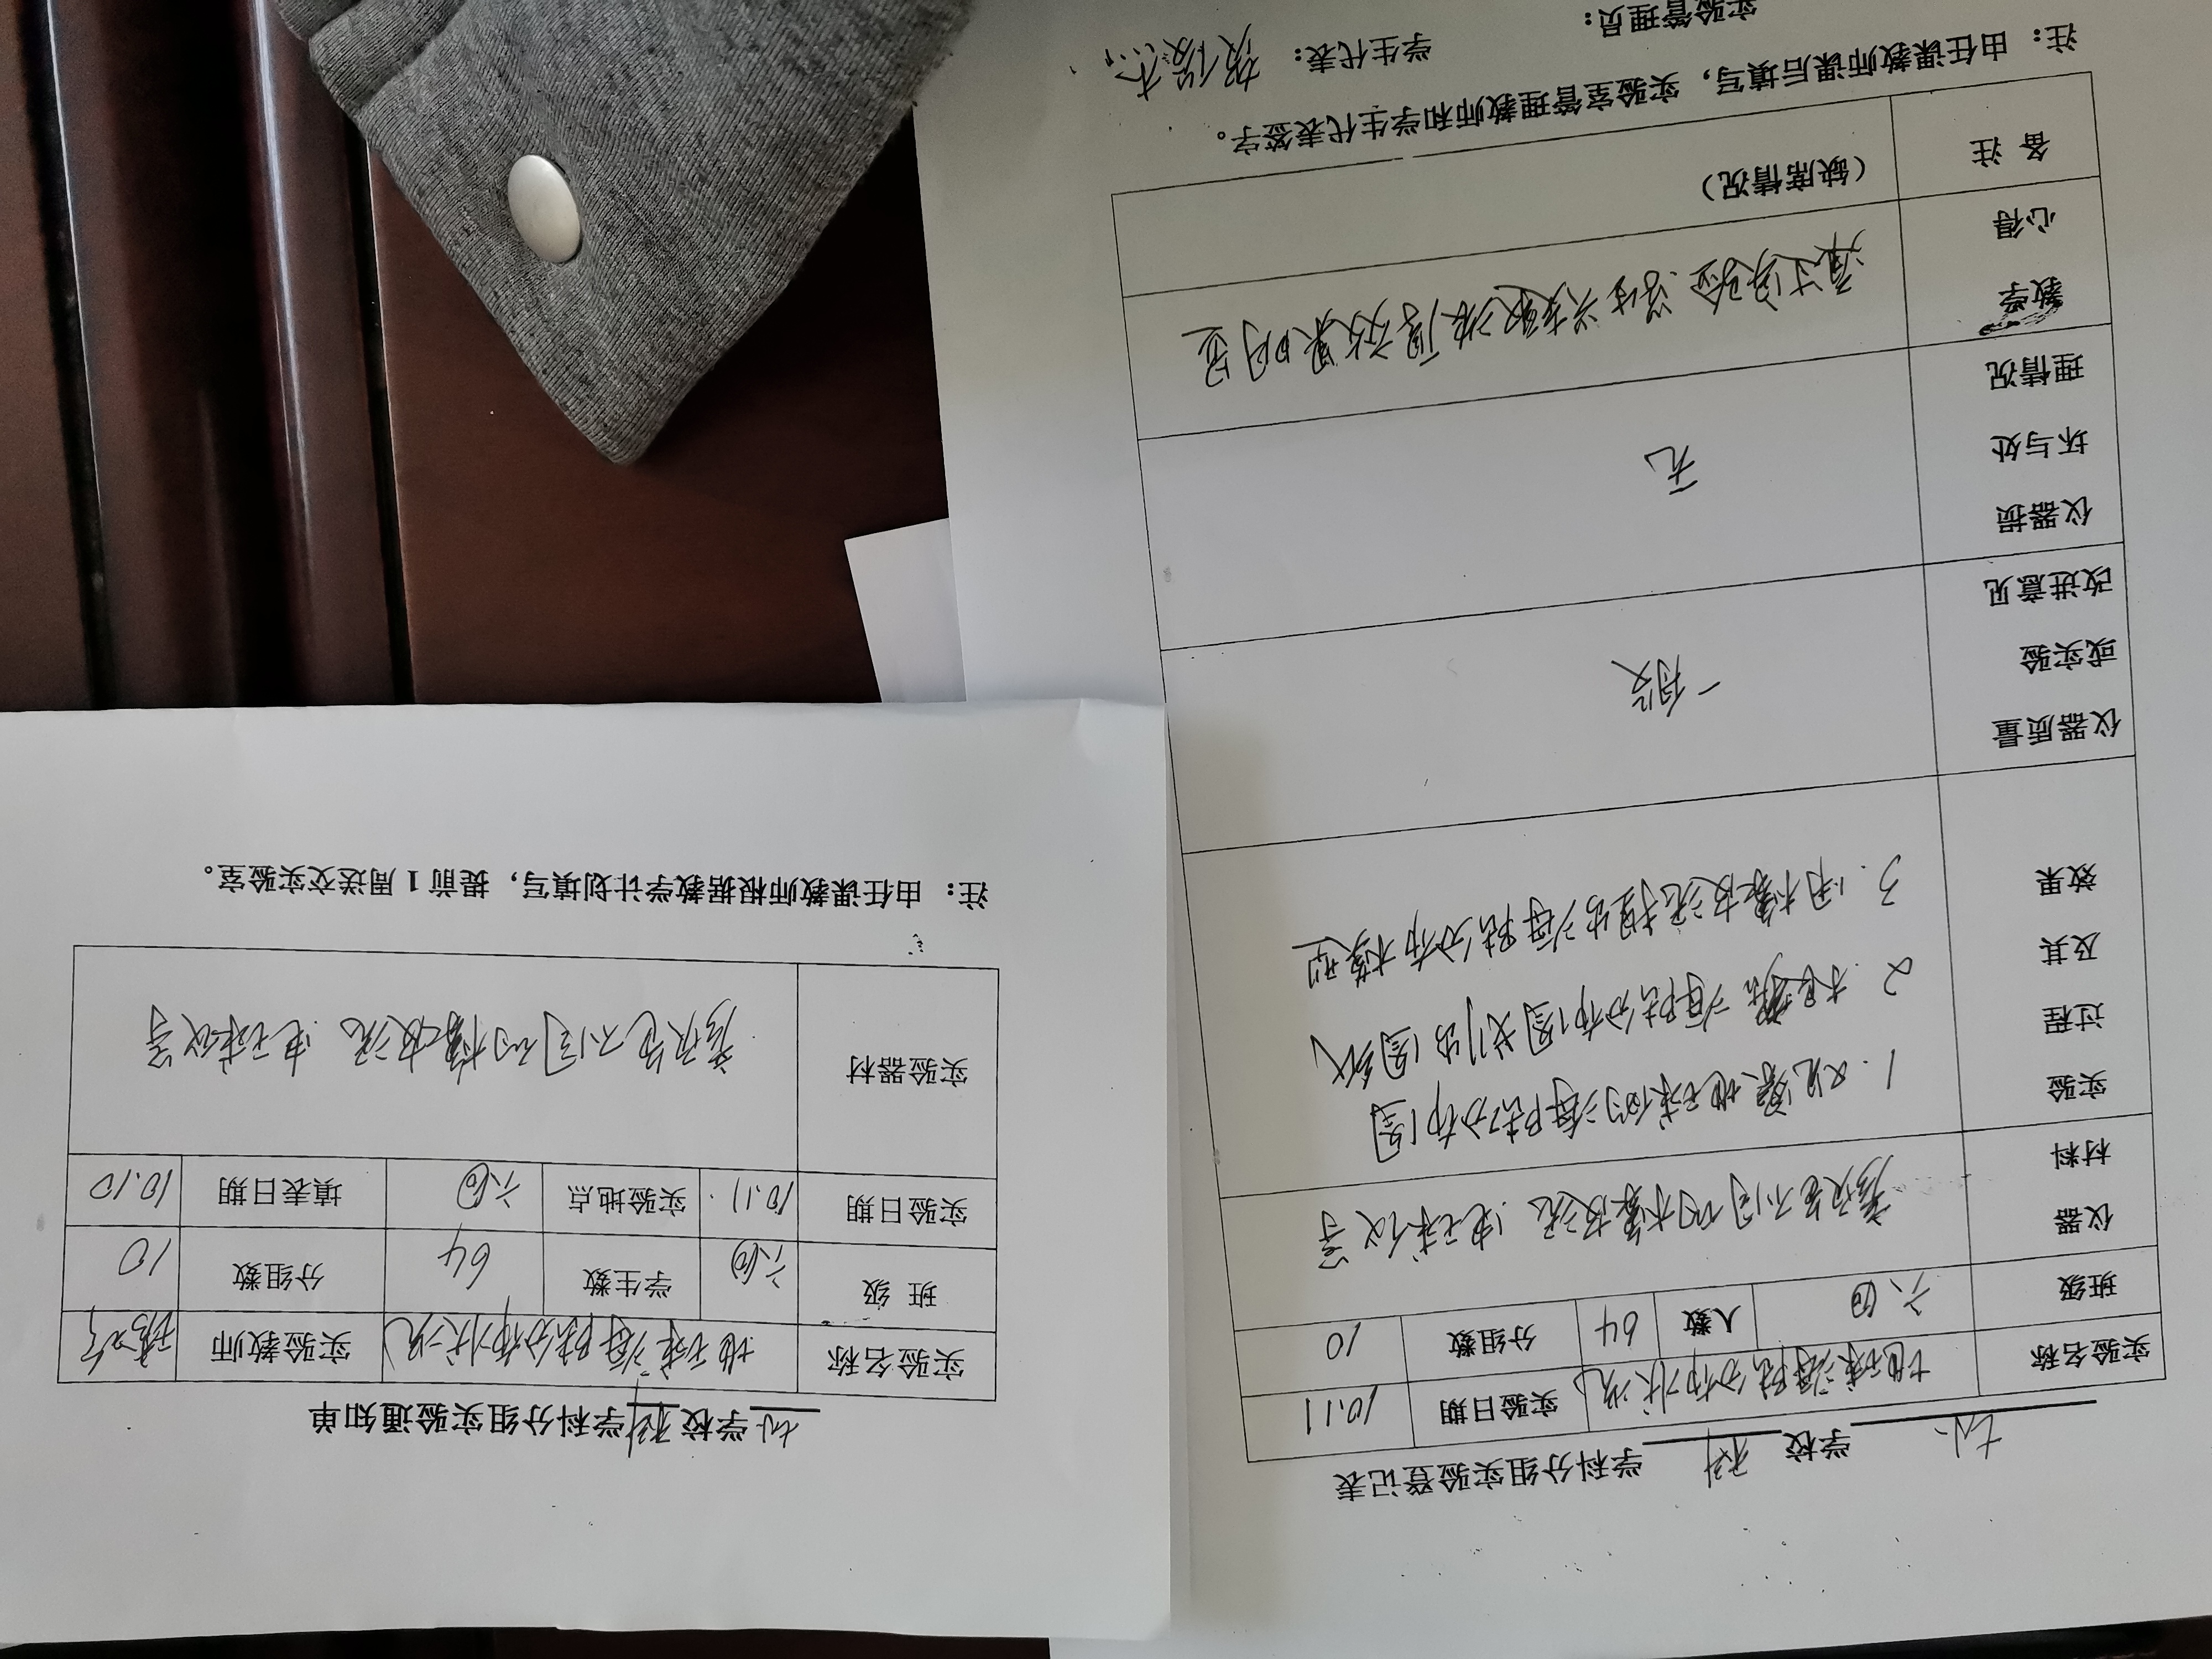 学校 科 学科分组实验通知单
实验名称 地球海陆分布状况 实验教师
班 级 六(四) 学生数 64 分组数 10
实验日期 10.11. 实验地点 六(四) 填表日期 10.10
实验器材 差颜色不同的橡皮泥 地球仪等
注：由任课教师根据教学计划填写，提前1周送交实验室。
学校 科 学科分组实验登记表
实验名称 地球海陆分布状况 实验日期 10.11
班级 六(四) 人数 64 分组数 10
仪器材料 颜色不同的橡皮泥 地球仪等
实验过程及其效果
1. 观察地球仪的海陆分布图
2. 根据海陆分布图划出图纸
3. 用橡皮泥捏出海陆分布模型
仪器质量或实验改进意见 一般
仪器损坏与处理情况 无
教学心得 通过实验 活性 效果明显
备 注 （缺席情况）
注：由任课教师课后填写，实验室管理教师和学生代表签字。
实验管理员： 学生代表：